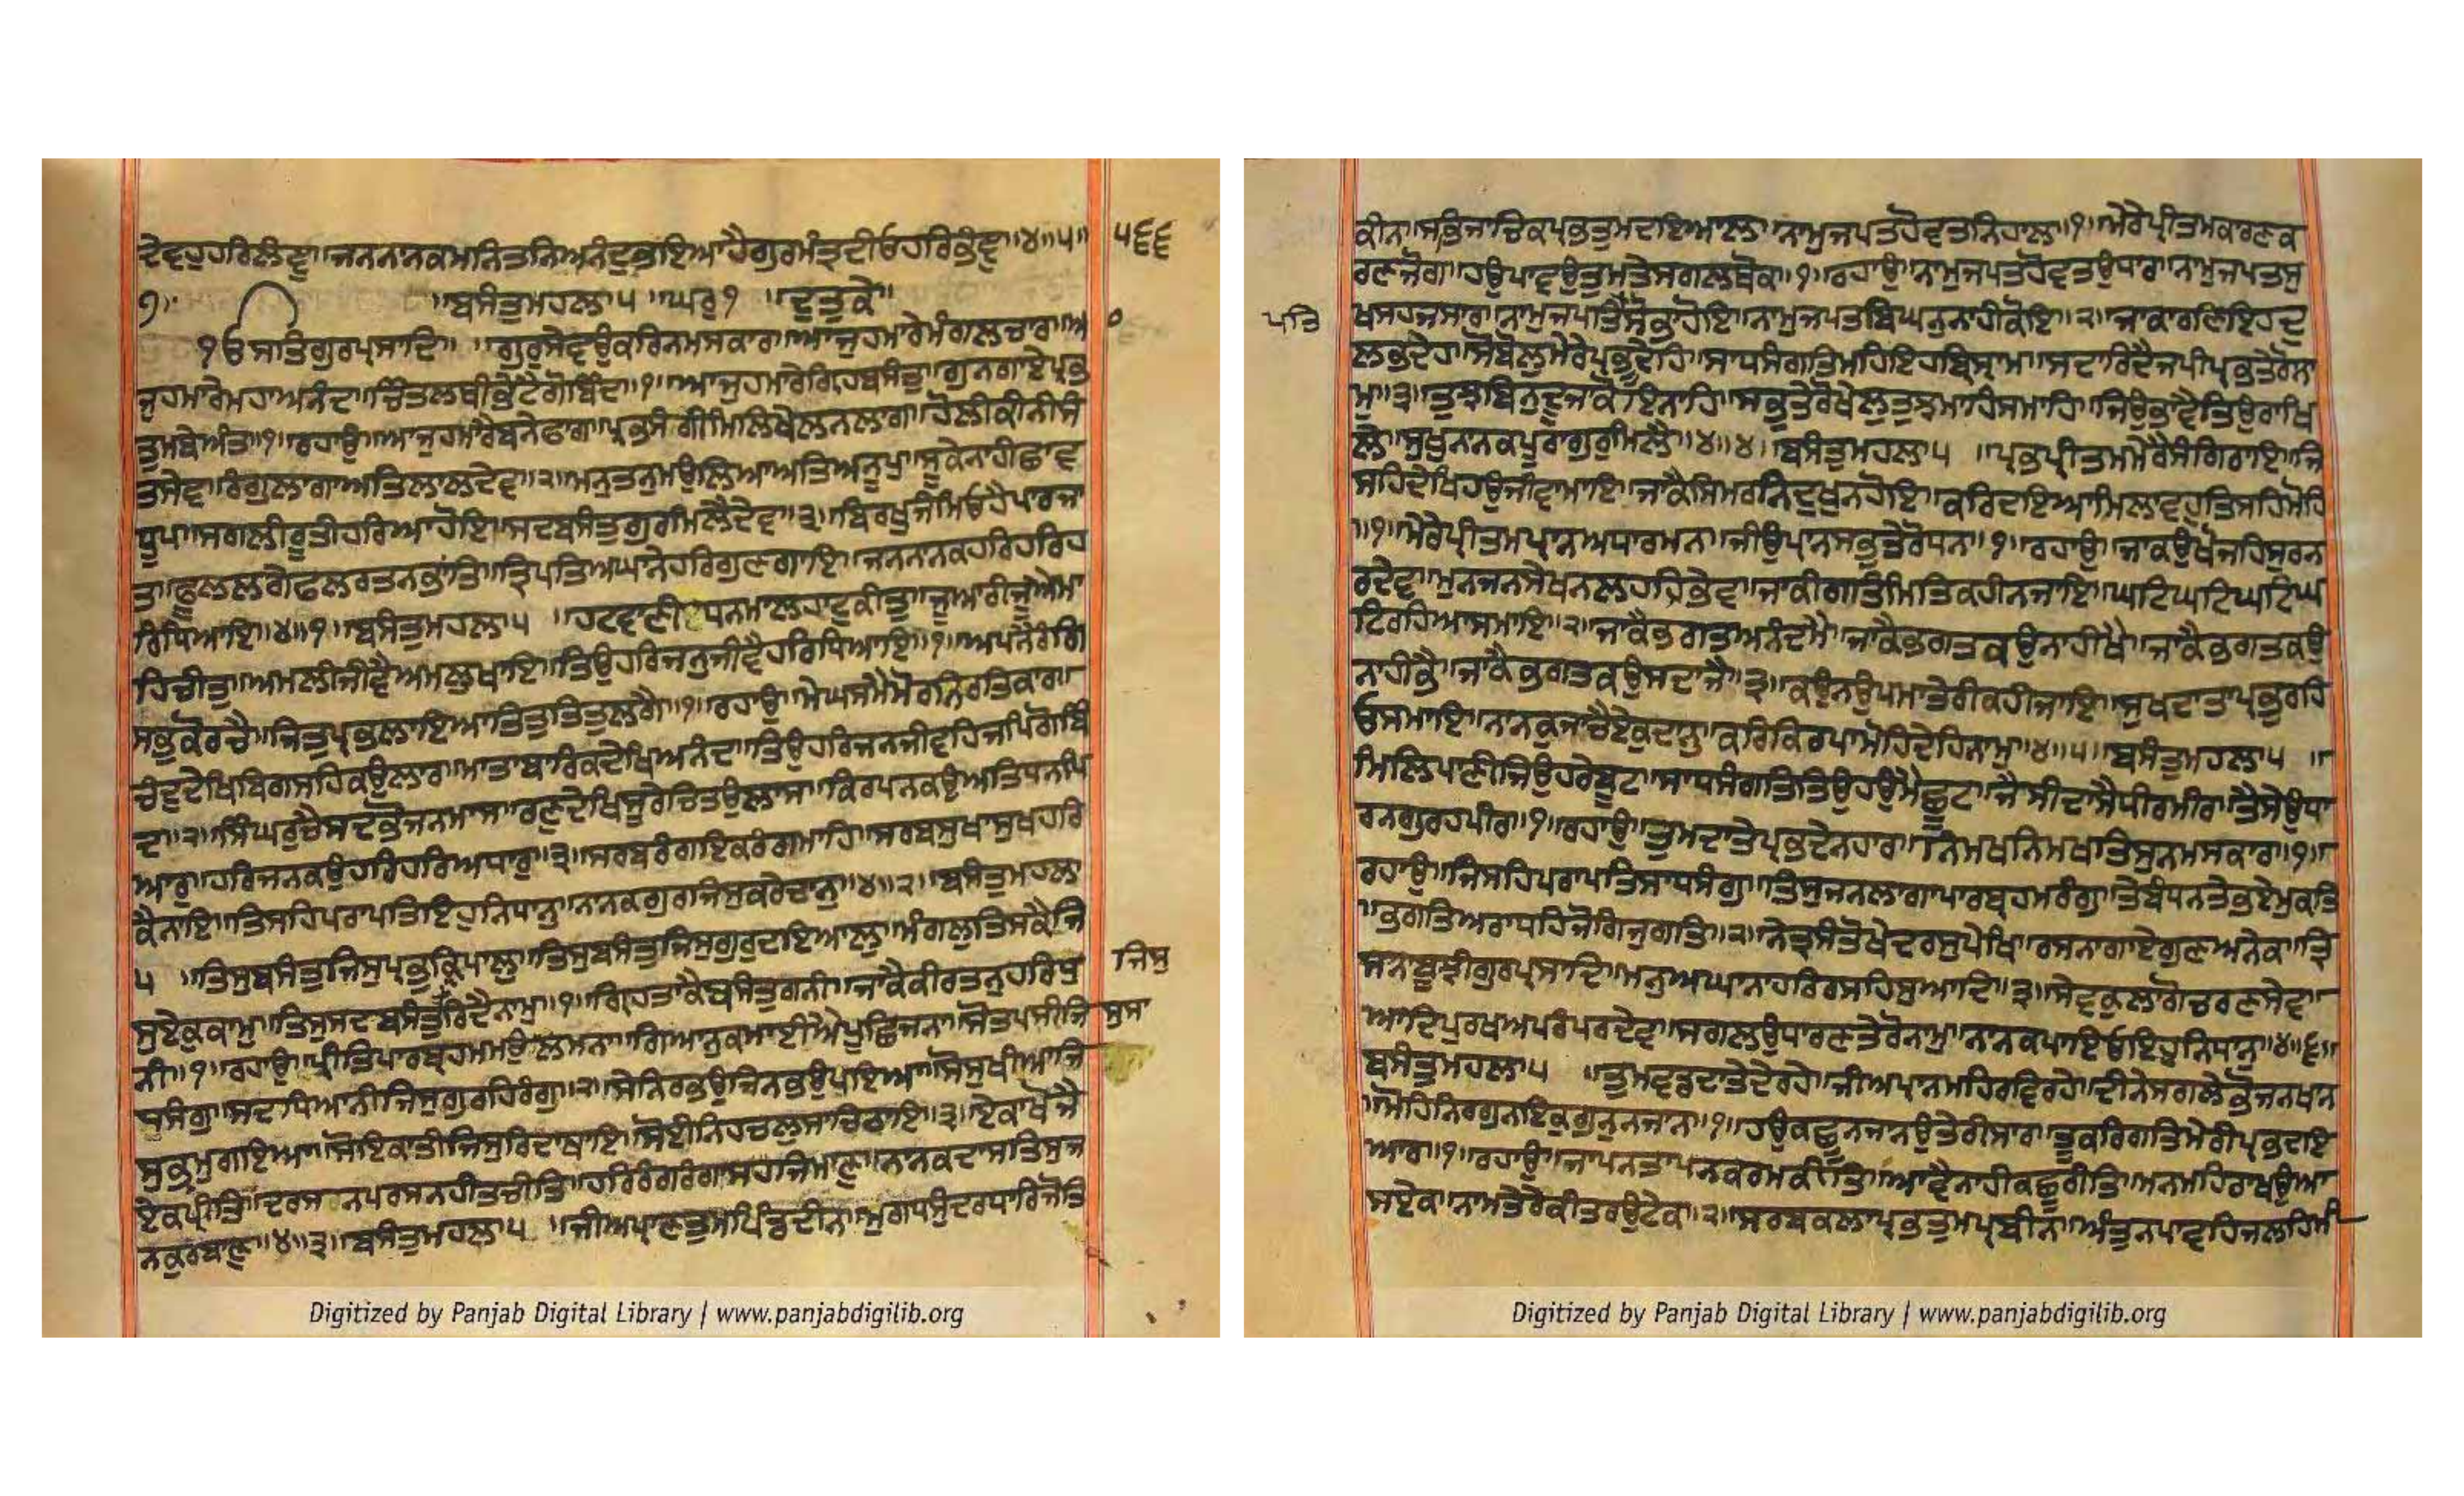 ਦੇਵਹੁਹਰਿਲੀਵਾ॥ਜਨਨਾਨਕਮਨਿਤਨਿਅਨੰਦੁਭਇਆਹੈਗੁਰਮੰਤ੍ਰਦੀਓਹਰਿਭੰਞਾ॥੪॥੫॥ ੫੬੬
੭॥ ॥ਬਸੰਤੁਮਹਲਾ੫ ॥ਘਰੁ੧ ॥ਦੁਤੁਕੇ॥
ੴਸਤਿਗੁਰਪ੍ਰਸਾਦਿ॥ ॥ਗੁਰੁਸੇਵਉਕਰਿਨਮਸਕਾਰ॥ਆਜੁਹਮਾਰੈਮੰਗਲਚਾਰ॥ਆ
ਜੁਹਮਾਰੈਮਹਾਅਨੰਦਾ॥ਚਿੰਤਲਥੀਭੇਟੈਗੋਬਿੰਦਾ॥੧॥ਆਜੁਹਮਾਰੈਗ੍ਰਿਹਬਸੰਤੁ॥ਗੁਨਗਾਏਪ੍ਰਭ
ਤੁਮਬੇਅੰਤ॥੧॥ਰਹਾਉ॥ਆਜੁਹਮਾਰੈਬਨੇਫਾਗ॥ਪ੍ਰਭਸੰਗੀਮਿਲਿਖੇਲਨਲਾਗ॥ਹੋਲੀਕੀਨੀਸੰ
ਤਸੇਵ॥ਰੰਗੁਲਾਗਾਅਤਿਲਾਲਦੇਵ॥੨॥ਮਨੁਤਨੁਮਉਲਿਆਅਤਿਅਨੂਪ॥ਸੂਕੇਨਾਹੀਛਾਵ
ਧੂਪ॥ਸਗਲੀਰੂਤੀਹਰਿਆਹੋਇ॥ਸਦਬਸੰਤੁਗੁਰਮਿਲੈਦੇਵ॥੩॥ਬਿਰਖੁਜੰਮਿਓਹੈਪਾਰਜਾ
ਤ॥ਫੂਲਲਗੇਫਲਰਤਨਭਾਂਤਿ॥ਤ੍ਰਿਪਤਿਅਘਾਨੇਹਰਿਗੁਣਗਾਇ॥ਜਨਨਾਨਕਹਰਿਹਰਿਹ
ਰਿਧਿਆਇ॥੪॥੧॥ਬਸੰਤੁਮਹਲਾ੫ ॥ਹਟਵਾਣੀਧਨਮਾਲਹਾਟੁਕੀਤੁ॥ਜੂਆਰੀਜੂਏਮਾ
ਹਿਚੀਤੁ॥ਅਮਲੀਜੀਵੈਅਮਲੁਖਾਇ॥ਤਿਉਹਰਿਜਨੁਜੀਵੈਹਰਿਧਿਆਇ॥੧॥ਅਪਨੈਰੰਗਿ
ਸਭੁਕੋਰਚੈ॥ਜਿਤੁਪ੍ਰਭਲਾਇਆਤਿਤੁਤਿਤੁਲਗੈ॥੧॥ਰਹਾਉ॥ਮੇਘਸਮੈਮੋਰਨਿਰਤਿਕਾਰ॥
ਚੰਦਦੇਖਿਬਿਗਸਹਿਕਉਲਾਰ॥ਮਾਤਾਬਾਰਿਕਦੇਖਿਅਨੰਦ॥ਤਿਉਹਰਿਜਨਜੀਵਹਿਜਪਿਗੋਬਿੰ
ਦ॥੨॥ਸਿੰਘਰੁਚੈਸਦਭੋਜਨਮਾਸ॥ਰਣੁਦੇਖਿਸੂਰੇਚਿਤਉਲਾਸ॥ਕਿਰਪਨਕਉਅਤਿਧਨਪਿ
ਆਰੁ॥ਹਰਿਜਨਕਉਹਰਿਹਰਿਅਧਾਰੁ॥੩॥ਸਰਬਰੰਗਇਕਰੰਗਮਾਹਿ॥ਸਰਬਸੁਖਾਸੁਖਹਰਿ
ਕੈਨਾਇ॥ਤਿਸਹਿਪਰਾਪਤਿਇਹੁਨਿਧਾਨੁ॥ਨਾਨਕਗੁਰਜਿਸੁਕਰੇਦਾਨੁ॥੪॥੨॥ਬਸੰਤੁਮਹਲਾ
੫ ॥ਤਿਸੁਬਸੰਤੁਜਿਸੁਪ੍ਰਭੁਕ੍ਰਿਪਾਲੁ॥ਤਿਸੁਬਸੰਤੁਜਿਸੁਗੁਰੁਦਇਆਲੁ॥ਮੰਗਲੁਤਿਸਕੈਜਿ ਜਿਸੁ
ਸੁਏਕੁਕਾਮੁ॥ਤਿਸੁਸਦਬਸੰਤੁਰਿਦੈਨਾਮੁ॥੧॥ਗ੍ਰਿਹਤਾਕੈਬਸੰਤੁਗਨੀ॥ਜਾਕੈਕੀਰਤਨੁਹਰਿਧੁ
ਨੀ॥੧॥ਰਹਾਉ॥ਪ੍ਰੀਤਿਪਾਰਬ੍ਰਹਮਮਉਲਮਨਾ॥ਗਿਆਨੁਕਮਾਈਐਪੂਛਿਜਨਾ॥ਸੋਤਪਸੀਜਿ ਸੁਸਾ
ਧਸੰਗੁ॥ਸਦਾਧਿਆਨੀਜਿਸੁਗੁਰਹਿਰੰਗੁ॥੨॥ਸੇਨਿਰਭਉਜਿਨਭਉਪਇਆ॥ਸੋਸੁਖੀਆਜਿ
ਸੁਭ੍ਰਮੁਗਇਆ॥ਸੋਇਕਾਤੀਜਿਸੁਰਿਦਾਥਾਇ॥ਸੋਈਨਿਹਚਲੁਸਾਚਿਠਾਇ॥੩॥ਏਕਾਖੋਜੈ
ਏਕਪ੍ਰੀਤਿ॥ਦਰਸਨਪਰਸਨਹੀਤਚੀਤਿ॥ਹਰਿਰੰਗਰੰਗਾਸਹਜਿਮਾਣੁ॥ਨਾਨਕਦਾਸਤਿਸੁਜ
ਨਕੁਰਬਾਣੁ॥੪॥੩॥ਬਸੰਤੁਮਹਲਾ੫ ॥ਜੀਅਪ੍ਰਾਣਤੁਮਪਿੰਡਦੀਨ॥ਮੁਗਧਸੁੰਦਰਧਾਰਿਜੋਤਿ
Digitized by Panjab Digital Library | www.panjabdigilib.org
ਕੀਨ॥ਸਭਿਜਾਚਿਕਪ੍ਰਭਤੁਮਦਇਆਲ॥ਨਾਮੁਜਪਤਹੋਵਤਨਿਹਾਲ॥੧॥ਮੇਰੇਪ੍ਰੀਤਮਕਾਰਣਕ
ਰਣਜੋਗ॥ਹਉਪਾਵਉਤੁਮਤੇਸਗਲਥੋਕ॥੧॥ਰਹਾਉ॥ਨਾਮੁਜਪਤਹੋਵਤਉਧਾਰ॥ਨਾਮੁਜਪਤਸੁ
ਪਤਿ ਖਸਹਜਸਾਰ॥ਨਾਮੁਜਪਤੈਸੋਭਾਹੋਇ॥ਨਾਮੁਜਪਤਬਿਘਨੁਨਾਹੀਕੋਇ॥੨॥ਜਾਕਾਰਣਿਇਹਦੁ
ਲਭਦੇਹ॥ਸੋਬੋਲੁਮੇਰੇਪ੍ਰਭੂਦੇਹਿ॥ਸਾਧਸੰਗਤਿਮਹਿਇਹੁਬਿਸ੍ਰਾਮ॥ਸਦਾਰਿਦੈਜਪੀਪ੍ਰਭਤੇਰੋਨਾ
ਮੁ॥੩॥ਤੁਝਬਿਨੁਦੂਜਾਕੋਇਨਾਹਿ॥ਸਭੁਤੇਰੋਖੇਲੁਤੁਝਮਾਹਿਸਮਾਹਿ॥ਜਿਉਭਾਵੈਤਿਉਰਾਖਿ
ਲੇ॥ਸੁਖੁਨਾਨਕਪੂਰਾਗੁਰੁਮਿਲੈ॥੪॥੪॥ਬਸੰਤੁਮਹਲਾ੫ ॥ਪ੍ਰਭਪ੍ਰੀਤਮਮੇਰੈਸੰਗਿਰਾਇ॥ਜਿ
ਸਹਿਦੇਖਿਹਉਜੀਵਾਮਾਇ॥ਜਾਕੈਸਿਮਰਨਿਦੁਖੁਨਹੋਇ॥ਕਰਿਦਇਆਮਿਲਾਵਹੁਤਿਸਹਿਮੋਹਿ
॥੧॥ਮੇਰੇਪ੍ਰੀਤਮਪ੍ਰਾਨਅਧਾਰਮਨ॥ਜੀਉਪ੍ਰਾਨਸਭੁਤੇਰੋਧਨ॥੧॥ਰਹਾਉ॥ਜਾਕਉਖੋਜਹਿਸੁਰਨ
ਰਦੇਵ॥ਮੁਨਜਨਸੇਖਨਲਹਹਿਭੇਵ॥ਜਾਕੀਗਤਿਮਿਤਿਕਹੀਨਜਾਇ॥ਘਟਿਘਟਿਘਟਿਘ
ਟਿਰਹਿਆਸਮਾਇ॥੨॥ਜਾਕੈਭਗਤਅਨੰਦਮੈ॥ਜਾਕੈਭਗਤਕਉਨਾਹੀਖੈ॥ਜਾਕੈਭਗਤਕਉ
ਨਾਹੀਭੈ॥ਜਾਕੈਭਗਤਕਉਸਦਾਜੈ॥੩॥ਕਉਨਉਪਮਾਤੇਰੀਕਹੀਜਾਇ॥ਸੁਖਦਾਤਾਪ੍ਰਭੁਰਹਿ
ਓਸਮਾਇ॥ਨਾਨਕੁਜਾਚੈਏਕੁਦਾਨੁ॥ਕਰਿਕਿਰਪਾਮੋਹਿਦੇਹਿਨਾਮੁ॥੪॥੫॥ਬਸੰਤੁਮਹਲਾ੫ ॥
ਮਿਲਿਪਾਣੀਜਿਉਹਰੇਬੂਟ॥ਸਾਧਸੰਗਤਿਤਿਉਹਉਮੈਛੂਟ॥ਜੈਸੀਦਾਸੈਧੀਰਮੀਰ॥ਤੈਸੇਉਧਾ
ਰਨਗੁਰਹਪੀਰ॥੧॥ਰਹਾਉ॥ਤੁਮਦਾਤੇਪ੍ਰਭਦੇਨਹਾਰ॥ਨਿਮਖਨਿਮਖਤਿਸੁਨਮਸਕਾਰ॥੧॥
ਰਹਾਉ॥ਜਿਸਹਿਪਰਾਪਤਿਸਾਧਸੰਗੁ॥ਤਿਸੁਜਨਲਾਗਾਪਾਰਬ੍ਰਹਮਰੰਗੁ॥ਤੇਬੰਧਨਤੇਭਏਮੁਕਤਿ
॥ਭਗਤਿਅਰਾਧਹਿਜੋਗਿਜੁਗਤਿ॥੨॥ਨੇਤ੍ਰਸੰਤੋਖੇਦਰਸੁਪੇਖਿ॥ਰਸਨਾਗਾਏਗੁਣਅਨੇਕ॥ਤ੍ਰਿ
ਸਨਾਬੂਝੀਗੁਰਪ੍ਰਸਾਦਿ॥ਮਨੁਅਘਾਨਾਹਰਿਰਸਹਿਸੁਆਦਿ॥੩॥ਸੇਵਕੁਲਾਗੋਚਰਣਸੇਵ॥
ਆਦਿਪੁਰਖਅਪਰੰਪਰਦੇਵ॥ਸਗਲਉਧਾਰਣਤੇਰੋਨਾਮੁ॥ਨਾਨਕਪਾਇਓਇਹੁਨਿਧਾਨੁ॥੪॥੬॥
ਬਸੰਤੁਮਹਲਾ੫ ॥ਤੁਮਵਡਦਾਤੇਦੇਰਹੇ॥ਜੀਅਪ੍ਰਾਨਮਹਿਰਵਿਰਹੇ॥ਦੀਨੇਸਗਲੇਭੋਜਨਖਾਨ
॥ਮੋਹਿਨਿਰਗੁਨਇਕੁਗੁਨੁਨਜਾਨ॥੧॥ਹਉਕਛੂਨਜਾਨਉਤੇਰੀਸਾਰ॥ਤੂਕਰਿਗਤਿਮੇਰੀਪ੍ਰਭਦਇ
ਆਰ॥੧॥ਰਹਾਉ॥ਜਾਪਨਤਾਪਨਕਰਮਕੀਤਿ॥ਆਵੈਨਾਹੀਕਛੂਰੀਤਿ॥ਮਨਮਹਿਰਾਖਉਆ
ਸਏਕ॥ਨਾਮਤੇਰੇਕੀਤਰਉਟੇਕ॥੨॥ਸਰਬਕਲਾਪ੍ਰਭਤੁਮਪ੍ਰਬੀਨ॥ਅੰਤੁਨਪਾਵਹਿਜਲਹਿਮੀ
Digitized by Panjab Digital Library | www.panjabdigilib.org